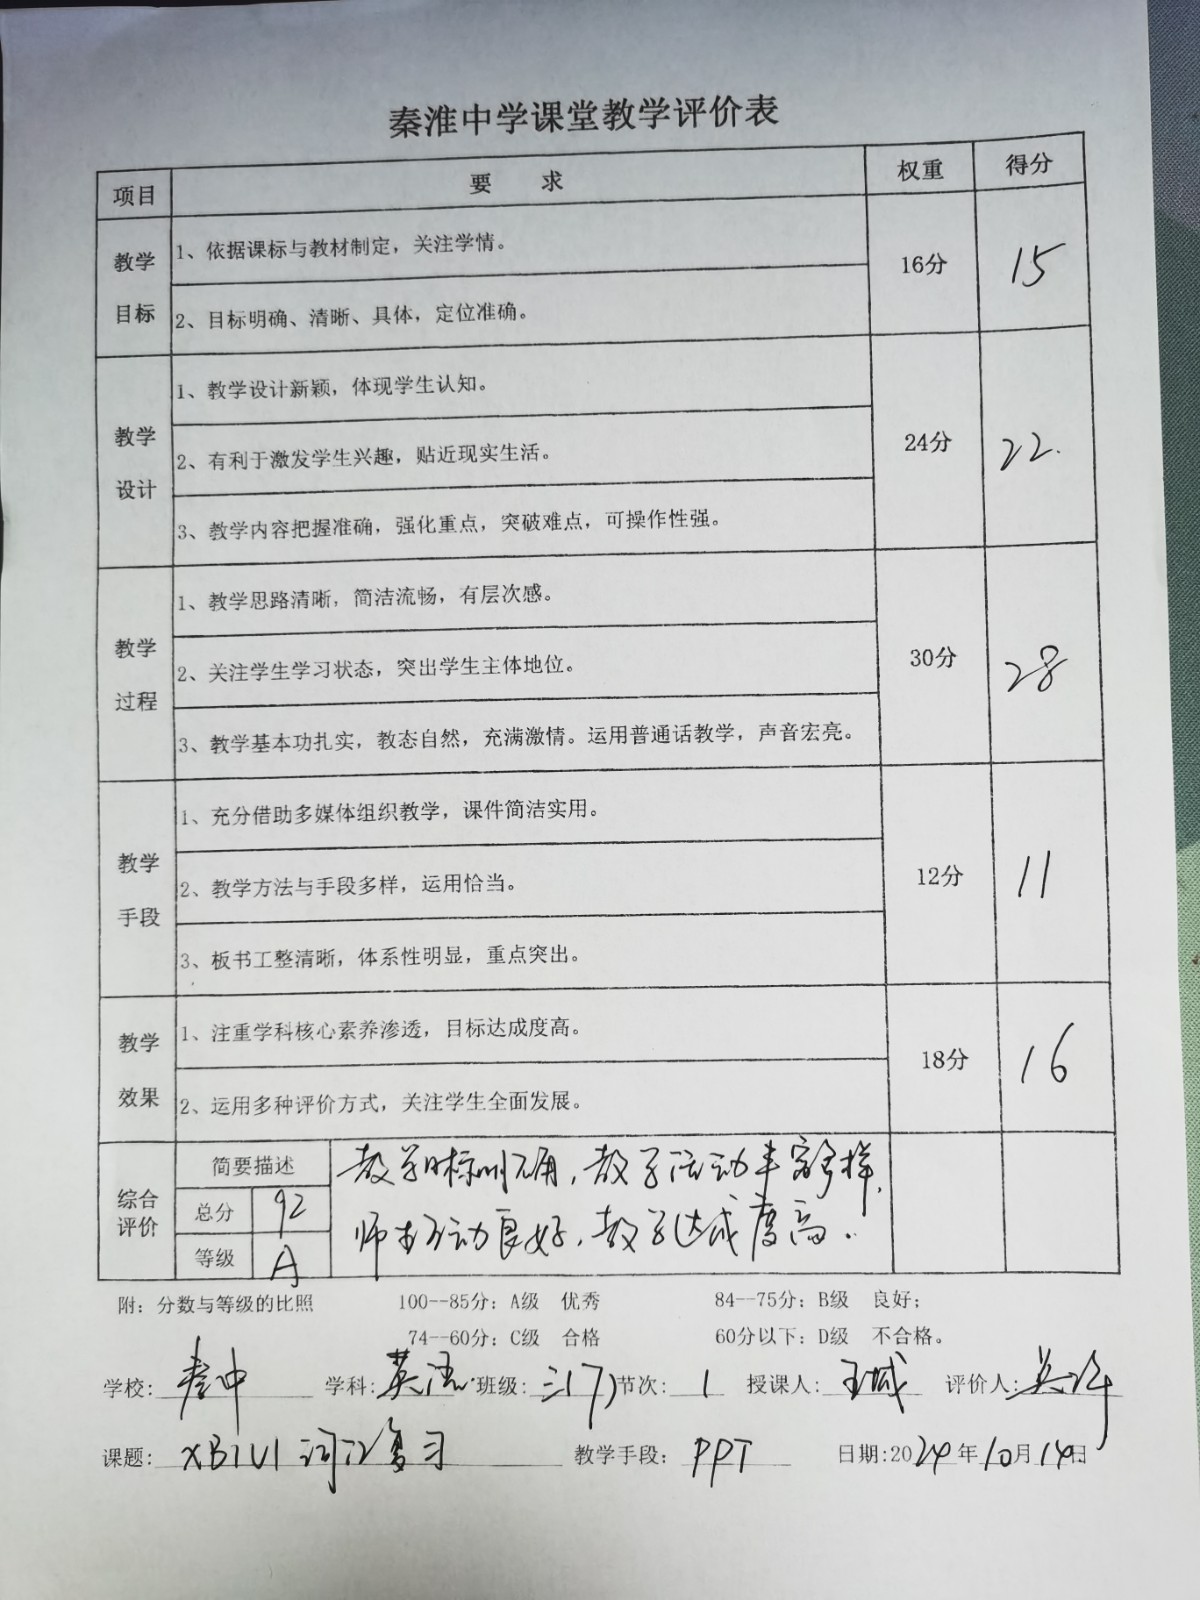 秦淮中学课堂教学评价表
项目 要 求 权重 得分
教学目标 1、依据课标与教材制定，关注学情。 16分 15
2、目标明确、清晰、具体，定位准确。
教学设计 1、教学设计新颖，体现学生认知。 24分 22.
2、有利于激发学生兴趣，贴近现实生活。
3、教学内容把握准确，强化重点，突破难点，可操作性强。
教学过程 1、教学思路清晰，简洁流畅，有层次感。 30分 28
2、关注学生学习状态，突出学生主体地位。
3、教学基本功扎实，教态自然，充满激情。运用普通话教学，声音宏亮。
教学手段 1、充分借助多媒体组织教学，课件简洁实用。 12分 11
2、教学方法与手段多样，运用恰当。
3、板书工整清晰，体系性明显，重点突出。
教学效果 1、注重学科核心素养渗透，目标达成度高。 18分 16
2、运用多种评价方式，关注学生全面发展。
综合评价 简要描述 教学目标明确，教学活动丰富多样，
总分 92 师生互动良好，教学达成度高。
等级 A
附：分数与等级的比照 100--85分：A级 优秀 84--75分：B级 良好；
74--60分：C级 合格 60分以下：D级 不合格。
学校：秦中 学科：英语 班级：三(7) 节次：1 授课人：王城 评价人：
课题：XB1U1 词汇复习 教学手段：PPT 日期：2024年10月14日